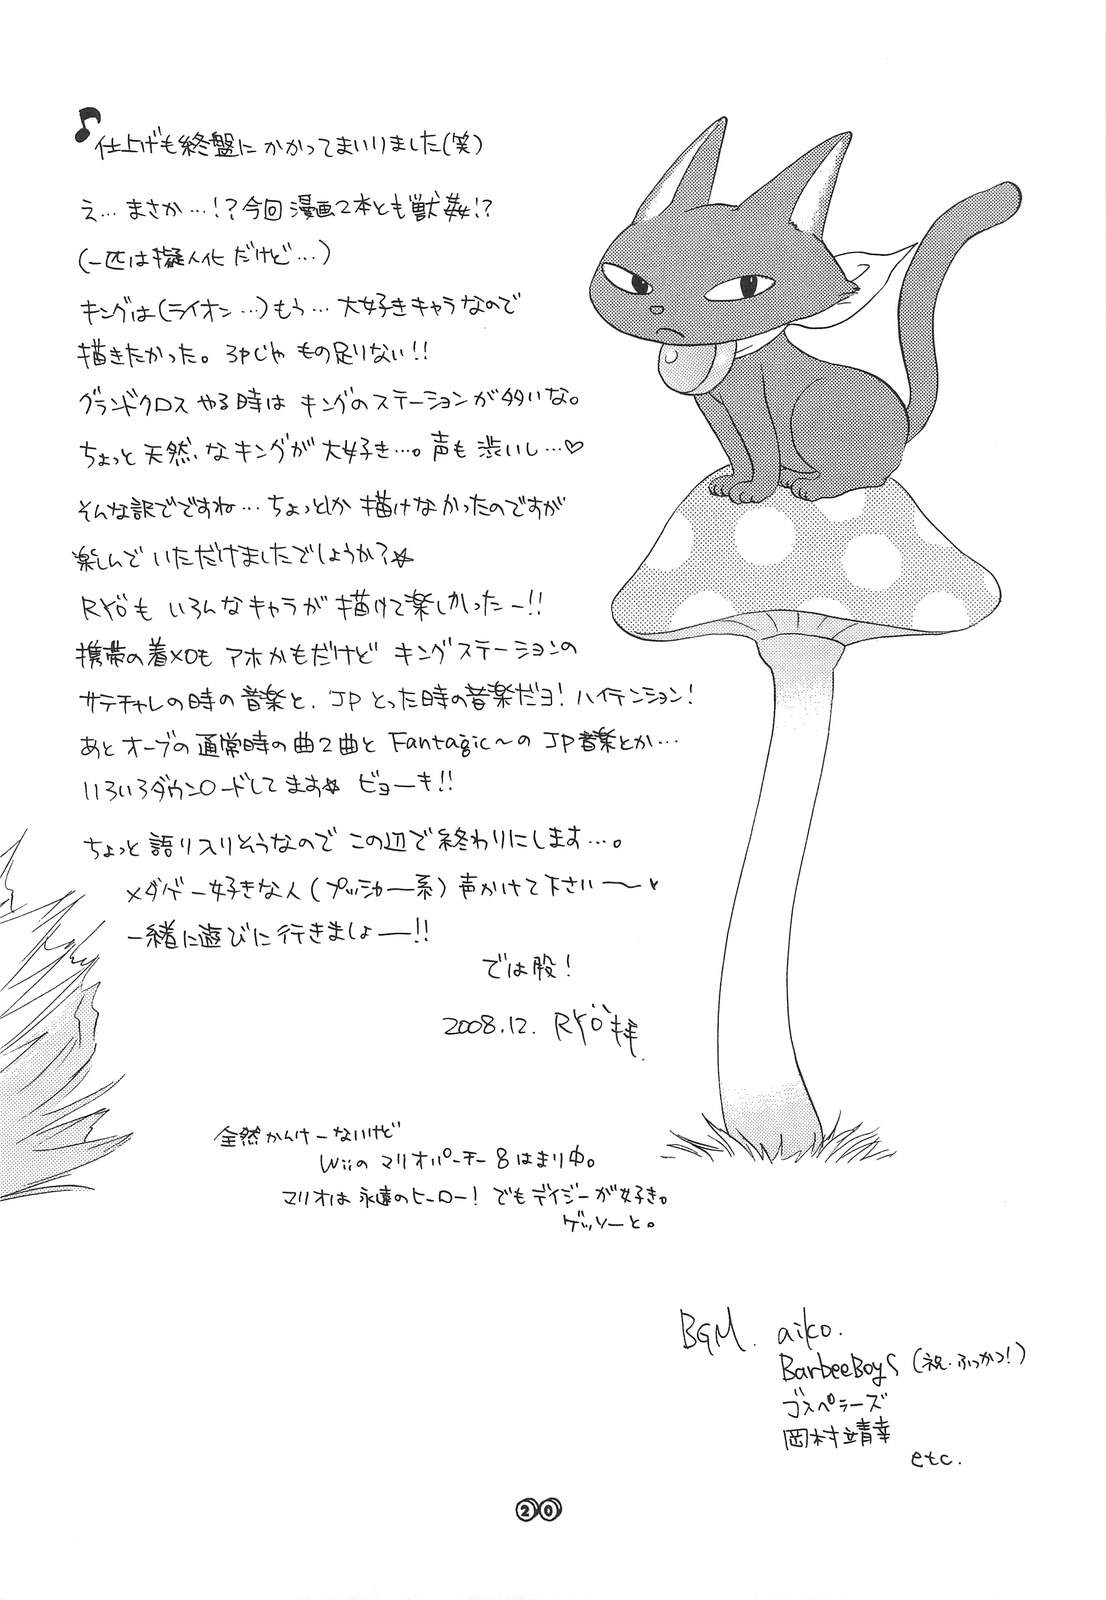 仕上げも終盤にかかってまいりました(笑)
え…まさか…!?今回漫画2本とも獣姦!?
(一匹は擬人化だけど…)
キングは(ライオン…)もう…大好きキャラなので
描きたかった。3Pじゃもの足りない!!
グランドクロスやる時はキングのステーションが多いな。
ちょっと天然なキングが大好き…。声も渋いし…♡
そんな訳でですね…ちょっとしか描けなかったのですが
楽しんでいただけましたでしょうか?☆
RYÖもいろんなキャラが描けて楽しかったー!!
携帯の着メロもアホかもだけどキングステーションの
サテチャレの時の音楽と、JPとった時の音楽だヨ!ハイテンション!
あとオーブの通常時の曲2曲とFantagic~のJP音楽とか…
いろいろダウンロードしてます☆ビョーキ!!
ちょっと語り入りそうなのでこの辺で終わりにします…。
メダゲー好きな人(プッシャー系)声かけて下さい〜♥
一緒に遊びに行きましょー!!
では股!
2008.12. RYÖ拝.
全然かんけーないけど
Wiiのマリオパーチー8はまり中。
マリオは永遠のヒーロー!でもデイジーが好き。
ゲッソーと。
BGM. aiko.
BarbeeBoys(祝・ふっかつ!)
ゴスペラーズ
岡村靖幸
etc.
20